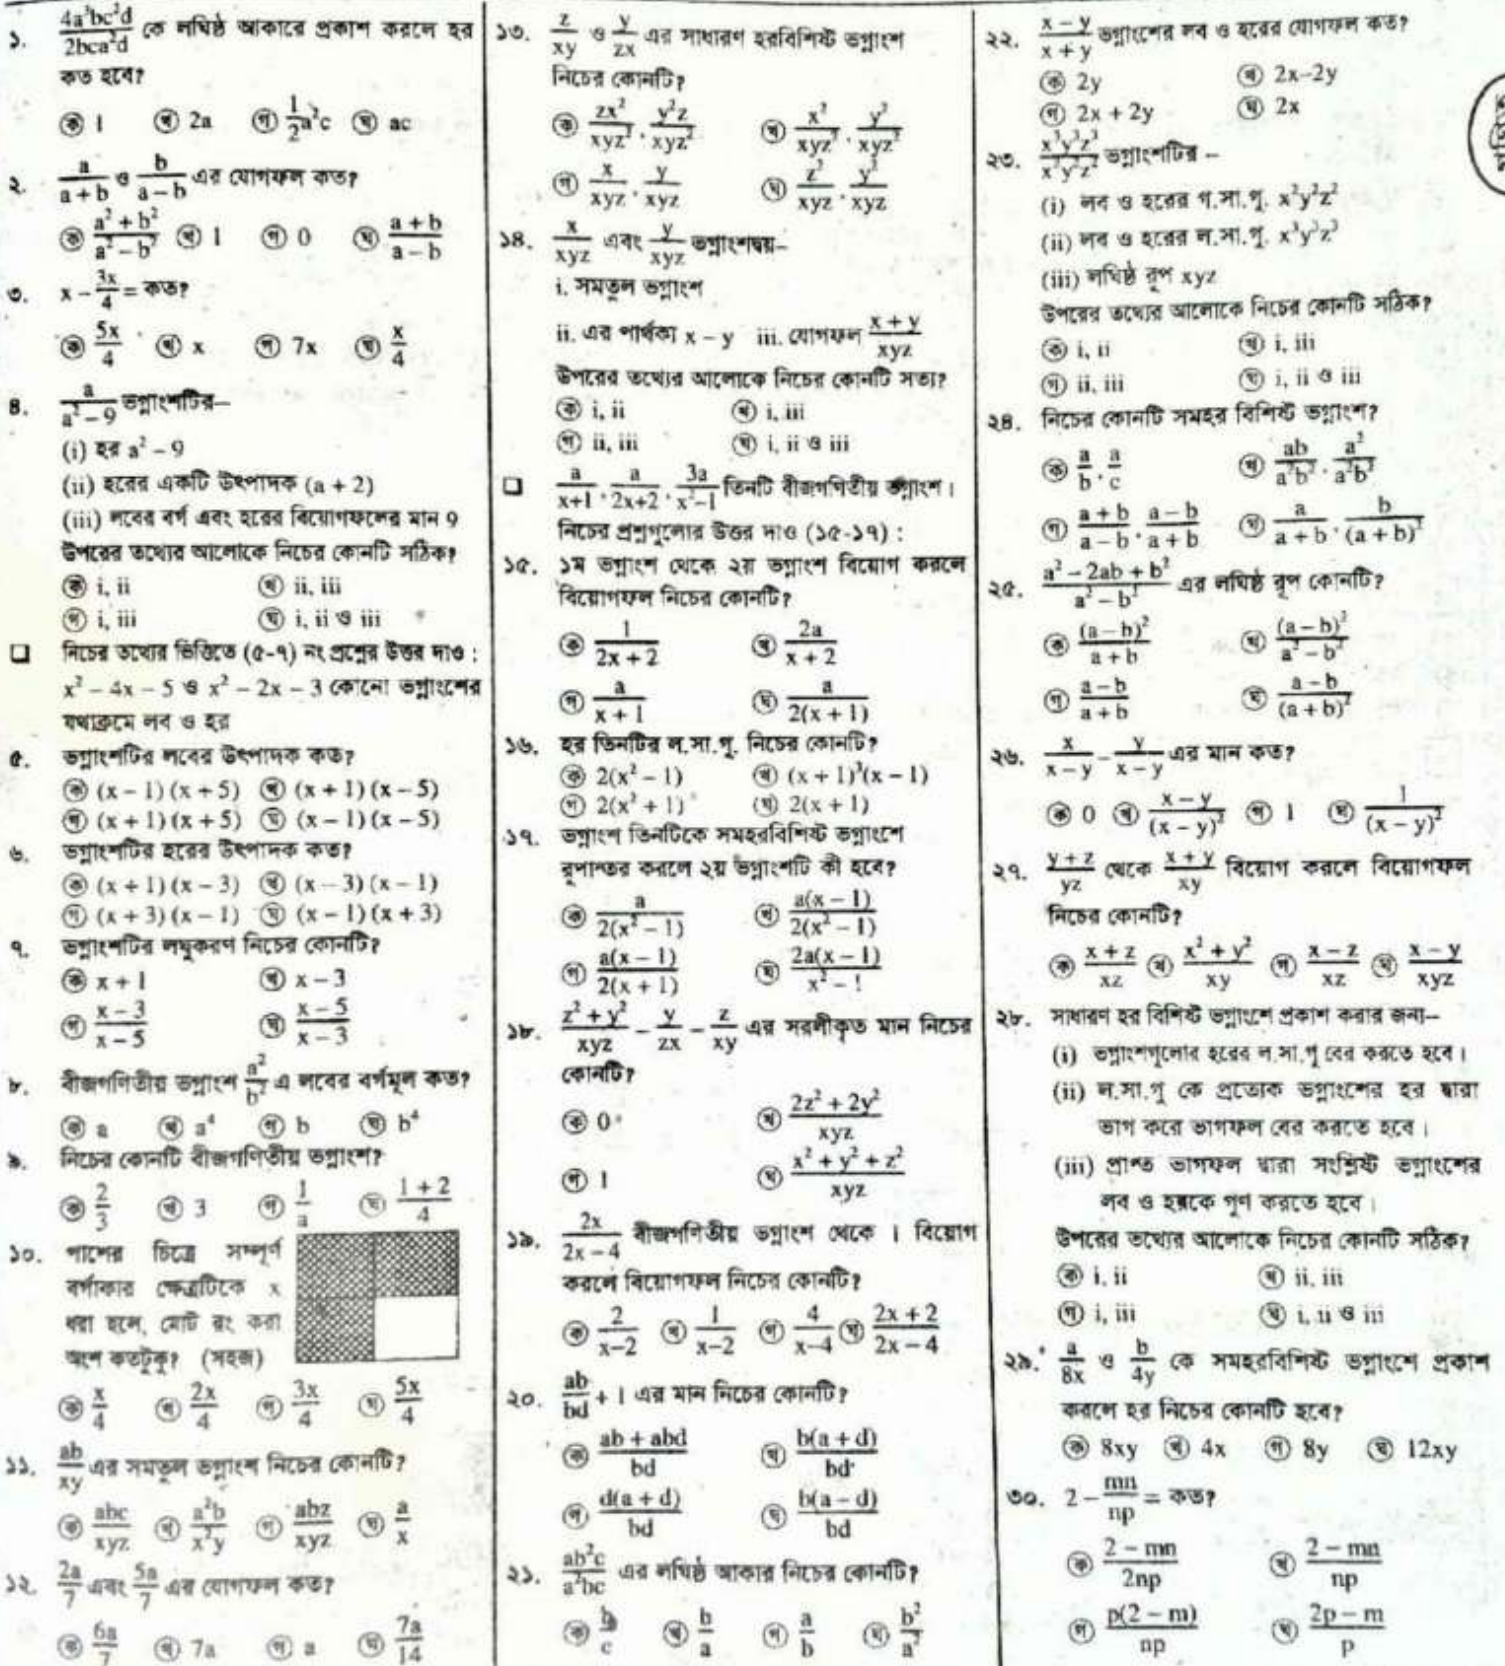 ১. \frac{4a^3bc^2d}{2bca^2d} কে লঘিষ্ঠ আকারে প্রকাশ করলে হর
কত হবে?
ক 1 খ 2a গ \frac{1}{2}a^2c ঘ ac
২. \frac{a}{a+b} ও \frac{b}{a-b} এর যোগফল কত?
ক \frac{a^2+b^2}{a^2-b^2} খ 1 গ 0 ঘ \frac{a+b}{a-b}
৩. x - \frac{3x}{4} = কত?
ক \frac{5x}{4} খ x গ 7x ঘ \frac{x}{4}
৪. \frac{a}{a^2-9} ভগ্নাংশটির–
(i) হর a^2 - 9
(ii) হরের একটি উৎপাদক (a + 2)
(iii) লবের বর্গ এবং হরের বিয়োগফলের মান 9
উপরের তথ্যের আলোকে নিচের কোনটি সঠিক?
ক i, ii খ ii, iii
গ i, iii ঘ i, ii ও iii
❑ নিচের তথ্যের ভিত্তিতে (৫-৭) নং প্রশ্নের উত্তর দাও :
x^2 - 4x - 5 ও x^2 - 2x - 3 কোনো ভগ্নাংশের
যথাক্রমে লব ও হর
৫. ভগ্নাংশটির লবের উৎপাদক কত?
ক (x - 1) (x + 5) খ (x + 1) (x - 5)
গ (x + 1) (x + 5) ঘ (x - 1) (x - 5)
৬. ভগ্নাংশটির হরের উৎপাদক কত?
ক (x + 1) (x - 3) খ (x - 3) (x - 1)
গ (x + 3) (x - 1) ঘ (x - 1) (x + 3)
৭. ভগ্নাংশটির লঘুকরণ নিচের কোনটি?
ক x + 1 খ x - 3
গ \frac{x-3}{x-5} ঘ \frac{x-5}{x-3}
৮. বীজগণিতীয় ভগ্নাংশ \frac{a^2}{b^2} এ লবের বর্গমূল কত?
ক a খ a^4 গ b ঘ b^4
৯. নিচের কোনটি বীজগণিতীয় ভগ্নাংশ?
ক \frac{2}{3} খ 3 গ \frac{1}{a} ঘ \frac{1+2}{4}
১০. পাশের চিত্রে সম্পূর্ণ
বর্গাকার ক্ষেত্রটিকে x
ধরা হলে, মোট রং করা
অংশ কতটুকু? (সহজ)
ক \frac{x}{4} খ \frac{2x}{4} গ \frac{3x}{4} ঘ \frac{5x}{4}
১১. \frac{ab}{xy} এর সমতুল ভগ্নাংশ নিচের কোনটি?
ক \frac{abc}{xyz} খ \frac{a^2b}{x^2y} গ \frac{abz}{xyz} ঘ \frac{a}{x}
১২. \frac{2a}{7} এবং \frac{5a}{7} এর যোগফল কত?
ক \frac{6a}{7} খ 7a গ a ঘ \frac{7a}{14}
১৩. \frac{z}{xy} ও \frac{y}{zx} এর সাধারণ হরবিশিষ্ট ভগ্নাংশ
নিচের কোনটি?
ক \frac{zx^2}{xyz^2}, \frac{y^2z}{xyz^2} খ \frac{x^2}{xyz^2}, \frac{y^2}{xyz^2}
গ \frac{x}{xyz}, \frac{y}{xyz} ঘ \frac{z^2}{xyz}, \frac{y^2}{xyz}
১৪. \frac{x}{xyz} এবং \frac{y}{xyz} ভগ্নাংশদ্বয়–
i. সমতুল ভগ্নাংশ
ii. এর পার্থক্য x - y iii. যোগফল \frac{x+y}{xyz}
উপরের তথ্যের আলোকে নিচের কোনটি সত্য?
ক i, ii খ i, iii
গ ii, iii ঘ i, ii ও iii
❑ \frac{a}{x+1}, \frac{a}{2x+2}, \frac{3a}{x^2-1} তিনটি বীজগণিতীয় ভগ্নাংশ।
নিচের প্রশ্নগুলোর উত্তর দাও (১৫-১৭) :
১৫. ১ম ভগ্নাংশ থেকে ২য় ভগ্নাংশ বিয়োগ করলে
বিয়োগফল নিচের কোনটি?
ক \frac{1}{2x+2} খ \frac{2a}{x+2}
গ \frac{a}{x+1} ঘ \frac{a}{2(x+1)}
১৬. হর তিনটির ল.সা.গু. নিচের কোনটি?
ক 2(x^2 - 1) খ (x + 1)^3(x - 1)
গ 2(x^2 + 1) ঘ 2(x + 1)
১৭. ভগ্নাংশ তিনটিকে সমহরবিশিষ্ট ভগ্নাংশে
রূপান্তর করলে ২য় ভগ্নাংশটি কী হবে?
ক \frac{a}{2(x^2-1)} খ \frac{a(x-1)}{2(x^2-1)}
গ \frac{a(x-1)}{2(x+1)} ঘ \frac{2a(x-1)}{x^2-1}
১৮. \frac{z^2+y^2}{xyz} - \frac{y}{zx} - \frac{z}{xy} এর সরলীকৃত মান নিচের
কোনটি?
ক 0 খ \frac{2z^2+2y^2}{xyz}
গ 1 ঘ \frac{x^2+y^2+z^2}{xyz}
১৯. \frac{2x}{2x-4} বীজগণিতীয় ভগ্নাংশ থেকে 1 বিয়োগ
করলে বিয়োগফল নিচের কোনটি?
ক \frac{2}{x-2} খ \frac{1}{x-2} গ \frac{4}{x-4} ঘ \frac{2x+2}{2x-4}
২০. \frac{ab}{bd} + 1 এর মান নিচের কোনটি?
ক \frac{ab+abd}{bd} খ \frac{b(a+d)}{bd}
গ \frac{d(a+d)}{bd} ঘ \frac{b(a-d)}{bd}
২১. \frac{ab^2c}{a^2bc} এর লঘিষ্ঠ আকার নিচের কোনটি?
ক \frac{b}{c} খ \frac{b}{a} গ \frac{a}{b} ঘ \frac{b^2}{a^2}
২২. \frac{x-y}{x+y} ভগ্নাংশের লব ও হরের যোগফল কত?
ক 2y খ 2x-2y
গ 2x + 2y ঘ 2x
২৩. \frac{x^3y^3z^3}{x^2y^2z^2} ভগ্নাংশটির –
(i) লব ও হরের গ.সা.গু. x^2y^2z^2
(ii) লব ও হরের ল.সা.গু. x^3y^3z^3
(iii) লঘিষ্ঠ রূপ xyz
উপরের তথ্যের আলোকে নিচের কোনটি সঠিক?
ক i, ii খ i, iii
গ ii, iii ঘ i, ii ও iii
২৪. নিচের কোনটি সমহর বিশিষ্ট ভগ্নাংশ?
ক \frac{a}{b}, \frac{a}{c} খ \frac{ab}{a^2b^2}, \frac{a^2}{a^2b^2}
গ \frac{a+b}{a-b}, \frac{a-b}{a+b} ঘ \frac{a}{a+b}, \frac{b}{(a+b)^2}
২৫. \frac{a^2-2ab+b^2}{a^2-b^2} এর লঘিষ্ঠ রূপ কোনটি?
ক \frac{(a-b)^2}{a+b} খ \frac{(a-b)^2}{a^2-b^2}
গ \frac{a-b}{a+b} ঘ \frac{a-b}{(a+b)^2}
২৬. \frac{x}{x-y} - \frac{y}{x-y} এর মান কত?
ক 0 খ \frac{x-y}{(x-y)^2} গ 1 ঘ \frac{1}{(x-y)^2}
২৭. \frac{y+z}{yz} থেকে \frac{x+y}{xy} বিয়োগ করলে বিয়োগফল
নিচের কোনটি?
ক \frac{x+z}{xz} খ \frac{x^2+y^2}{xy} গ \frac{x-z}{xz} ঘ \frac{x-y}{xyz}
২৮. সাধারণ হর বিশিষ্ট ভগ্নাংশে প্রকাশ করার জন্য–
(i) ভগ্নাংশগুলোর হরের ল.সা.গু বের করতে হবে।
(ii) ল.সা.গু কে প্রত্যেক ভগ্নাংশের হর দ্বারা
ভাগ করে ভাগফল বের করতে হবে।
(iii) প্রাপ্ত ভাগফল দ্বারা সংশ্লিষ্ট ভগ্নাংশের
লব ও হরকে গুণ করতে হবে।
উপরের তথ্যের আলোকে নিচের কোনটি সঠিক?
ক i, ii খ ii, iii
গ i, iii ঘ i, ii ও iii
২৯. \frac{a}{8x} ও \frac{b}{4y} কে সমহরবিশিষ্ট ভগ্নাংশে প্রকাশ
করলে হর নিচের কোনটি হবে?
ক 8xy খ 4x গ 8y ঘ 12xy
৩০. 2 - \frac{mn}{np} = কত?
ক \frac{2-mn}{2np} খ \frac{2-mn}{np}
গ \frac{p(2-m)}{np} ঘ \frac{2p-m}{p}